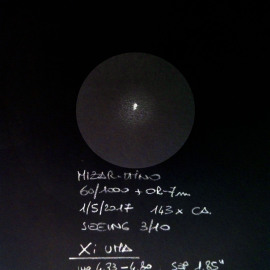 MIZAR-MINO
60/1000 + OR-7mm
1/5/2017 143x CA.
SEEING 3/10
Xi UMA
4.33-4.80 SEP 1.85"